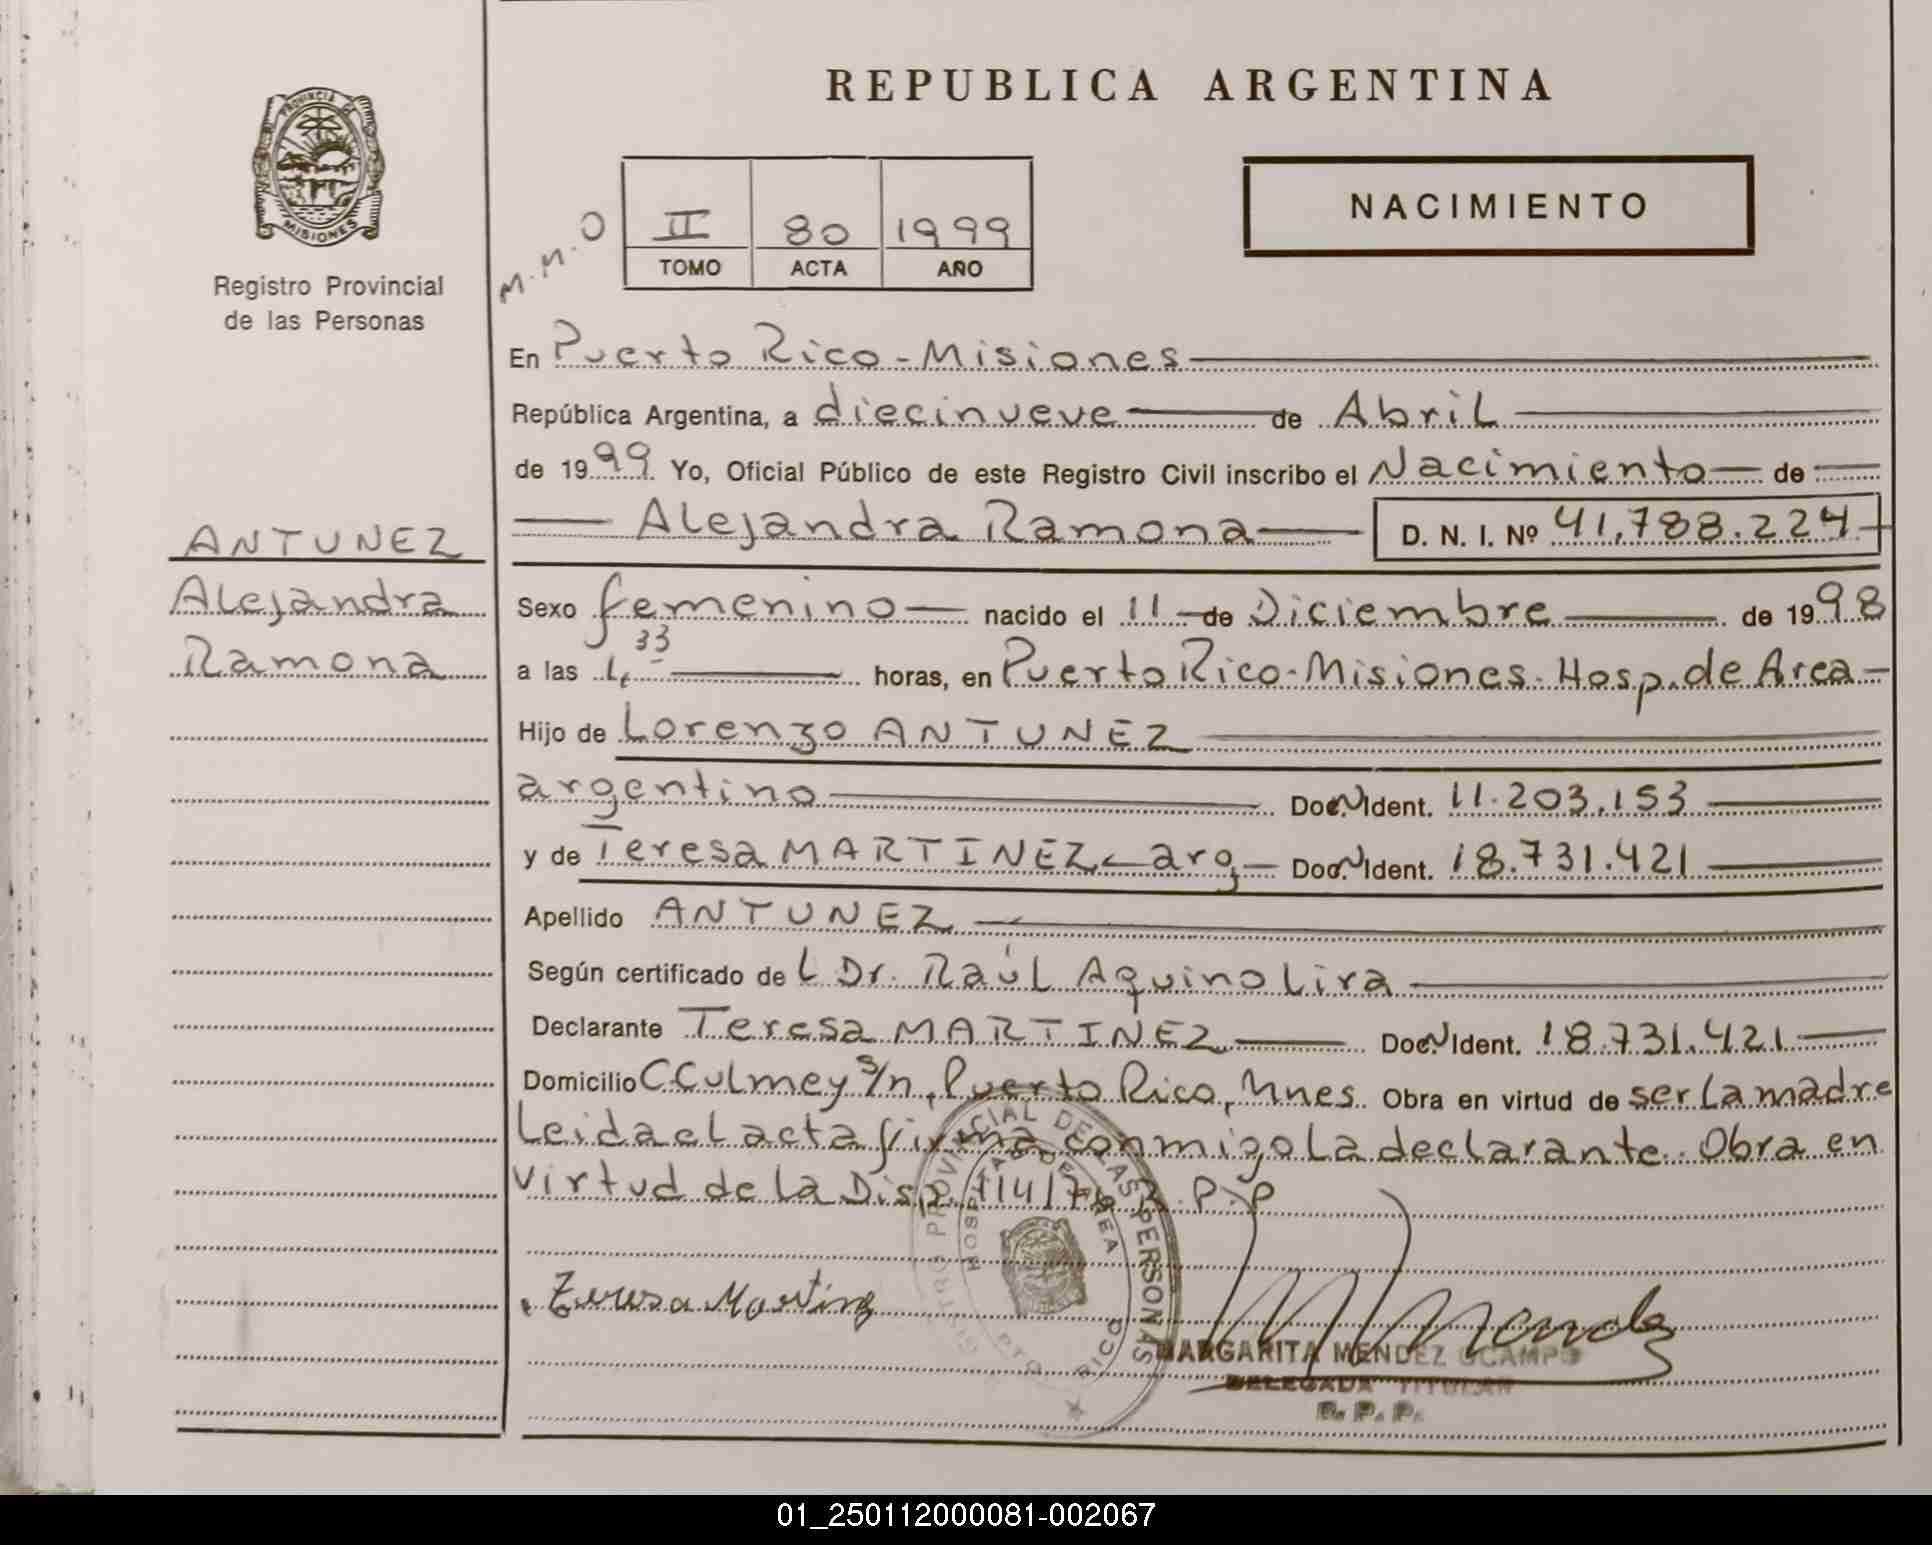 REPUBLICA ARGENTINA
PROVINCIA DE
MISIONES
Registro Provincial
de las Personas
M.M.O
II 80 1999
TOMO ACTA AÑO
NACIMIENTO
En Puerto Rico - Misiones
República Argentina, a diecinueve de Abril
de 1999 Yo, Oficial Público de este Registro Civil inscribo el Nacimiento de
Alejandra Ramona D. N. I. Nº 41.788.224
ANTUNEZ
Alejandra
Ramona
Sexo femenino nacido el 11 de Diciembre de 1998
a las 4,33 horas, en Puerto Rico - Misiones. Hosp. de Area
Hijo de Lorenzo ANTUNEZ
argentino Doc. Ident. 11.203.153
y de Teresa MARTINEZ - arg Doc. Ident. 18.731.421
Apellido ANTUNEZ
Según certificado de L Dr. Raúl Aquino Lira
Declarante Teresa MARTINEZ Doc. Ident. 18.731.421
Domicilio C.Culmey s/n, Puerto Rico, Mnes Obra en virtud de ser la madre
Leida el acta firma conmigo la declarante. Obra en
virtud de la Disp. 114/76 R.P.P
PROVINCIAL DE LAS PERSONAS
HOSPITAL DE AREA
PTO RICO
Teresa Martinez
M Mendez
MARGARITA MENDEZ OCAMPO
DELEGADA TITULAR
R. P. P.
01_250112000081-002067